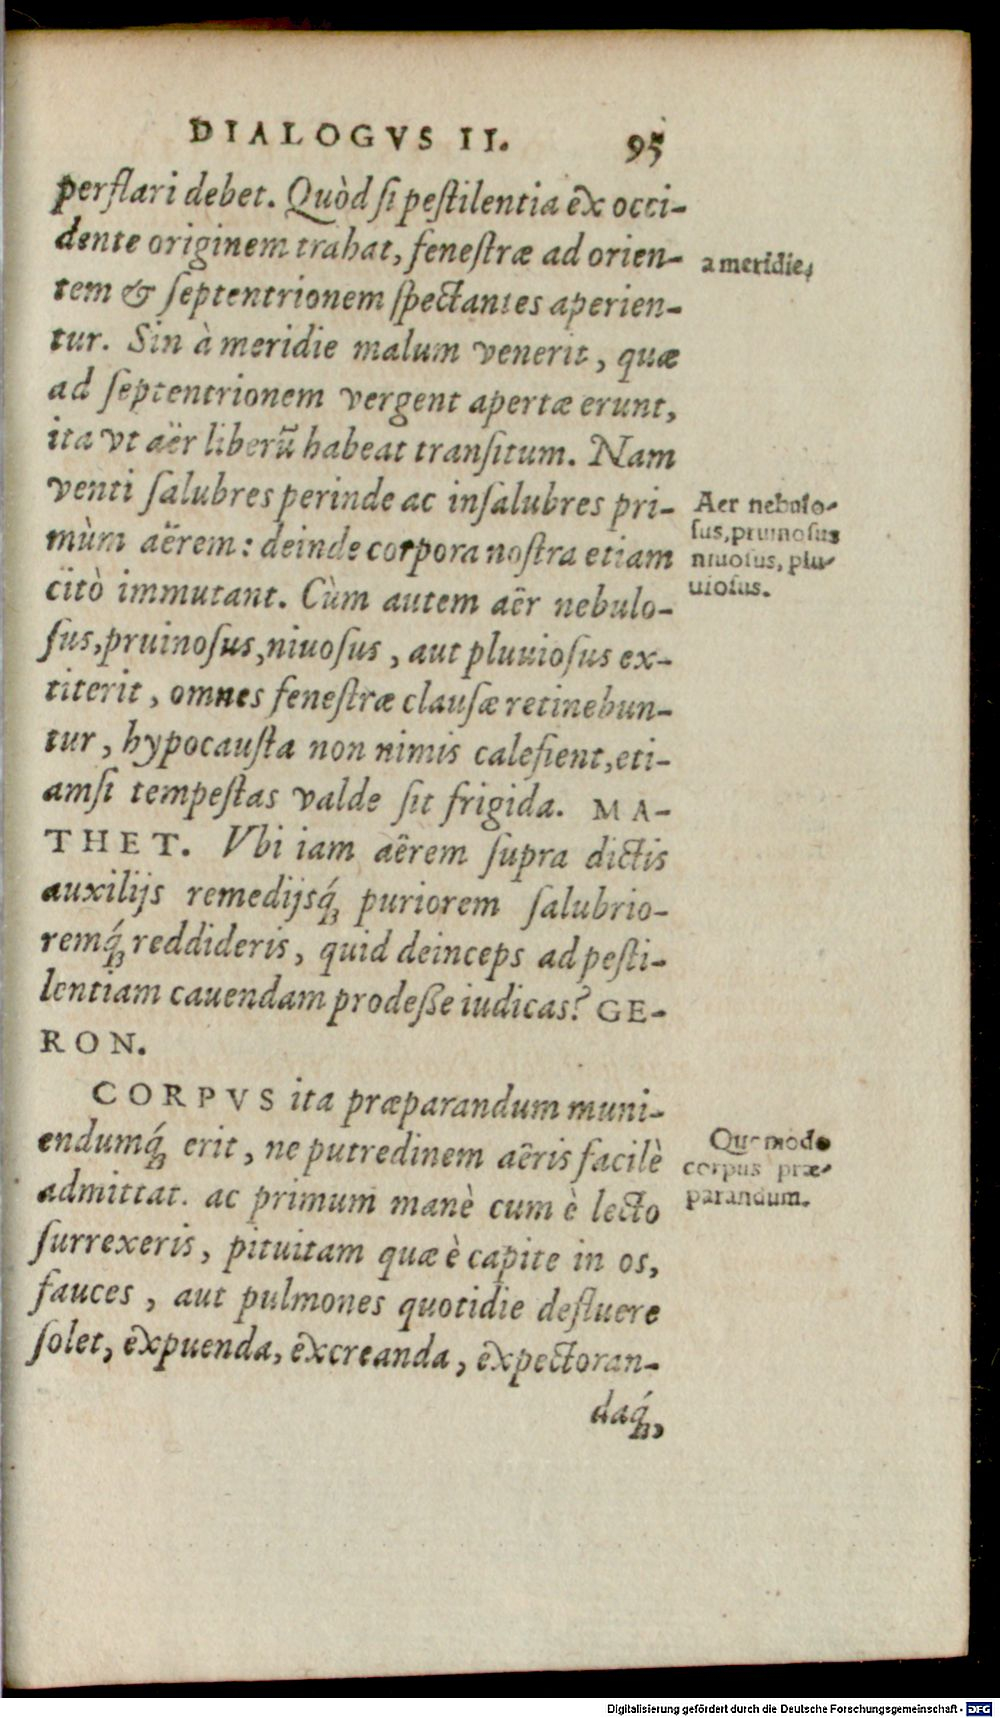 DIALOGVS II. 95
perflari debet. Quòd ſi peſtilentia ex occi-
dente originem trahat, feneſtræ ad orien-
a meridie,
tem & ſeptentrionem ſpectantes aperien-
tur. Sin à meridie malum venerit, quæ
ad ſeptentrionem vergent apertæ erunt,
ita vt aër liberū habeat tranſitum. Nam
venti ſalubres perinde ac inſalubres pri-
mùm aërem: deinde corpora noſtra etiam
citò immutant. Cùm autem aër nebulo-
Aer nebulo-
ſus, pruinoſus
niuoſus, plu-
uioſus.
ſus, pruinoſus, niuoſus, aut pluuioſus ex-
titerit, omnes feneſtræ clauſæ retinebun-
tur, hypocauſta non nimis calefient, eti-
amſi tempeſtas valde ſit frigida. MA-
THET. Vbi iam aërem ſupra dictis
auxilijs remedijsq́ꝫ puriorem ſalubrio-
remq́ꝫ reddideris, quid deinceps ad peſti-
lentiam cauendam prodeſſe iudicas? GE-
RON.
CORPVS ita præparandum muni-
endumq́ꝫ erit, ne putredinem aëris facilè
Quomodo
corpus præ-
parandum.
admittat. ac primum manè cum è lecto
ſurrexeris, pituitam quæ è capite in os,
fauces, aut pulmones quotidie defluere
ſolet, expuenda, excreanda, expectoran-
daq́ꝫ,
Digitalisierung gefördert durch die Deutsche Forschungsgemeinschaft - DFG